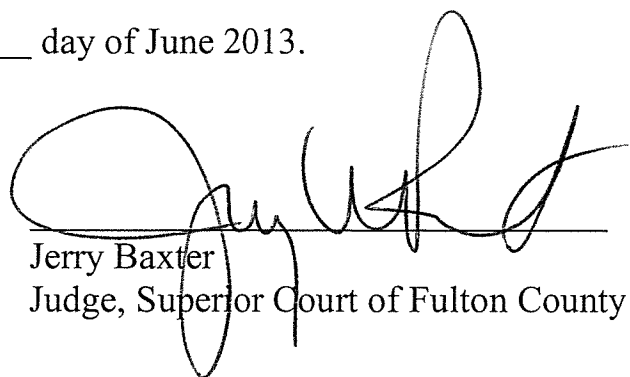 __ day of June 2013.
Jerry Baxter
Judge, Superior Court of Fulton County